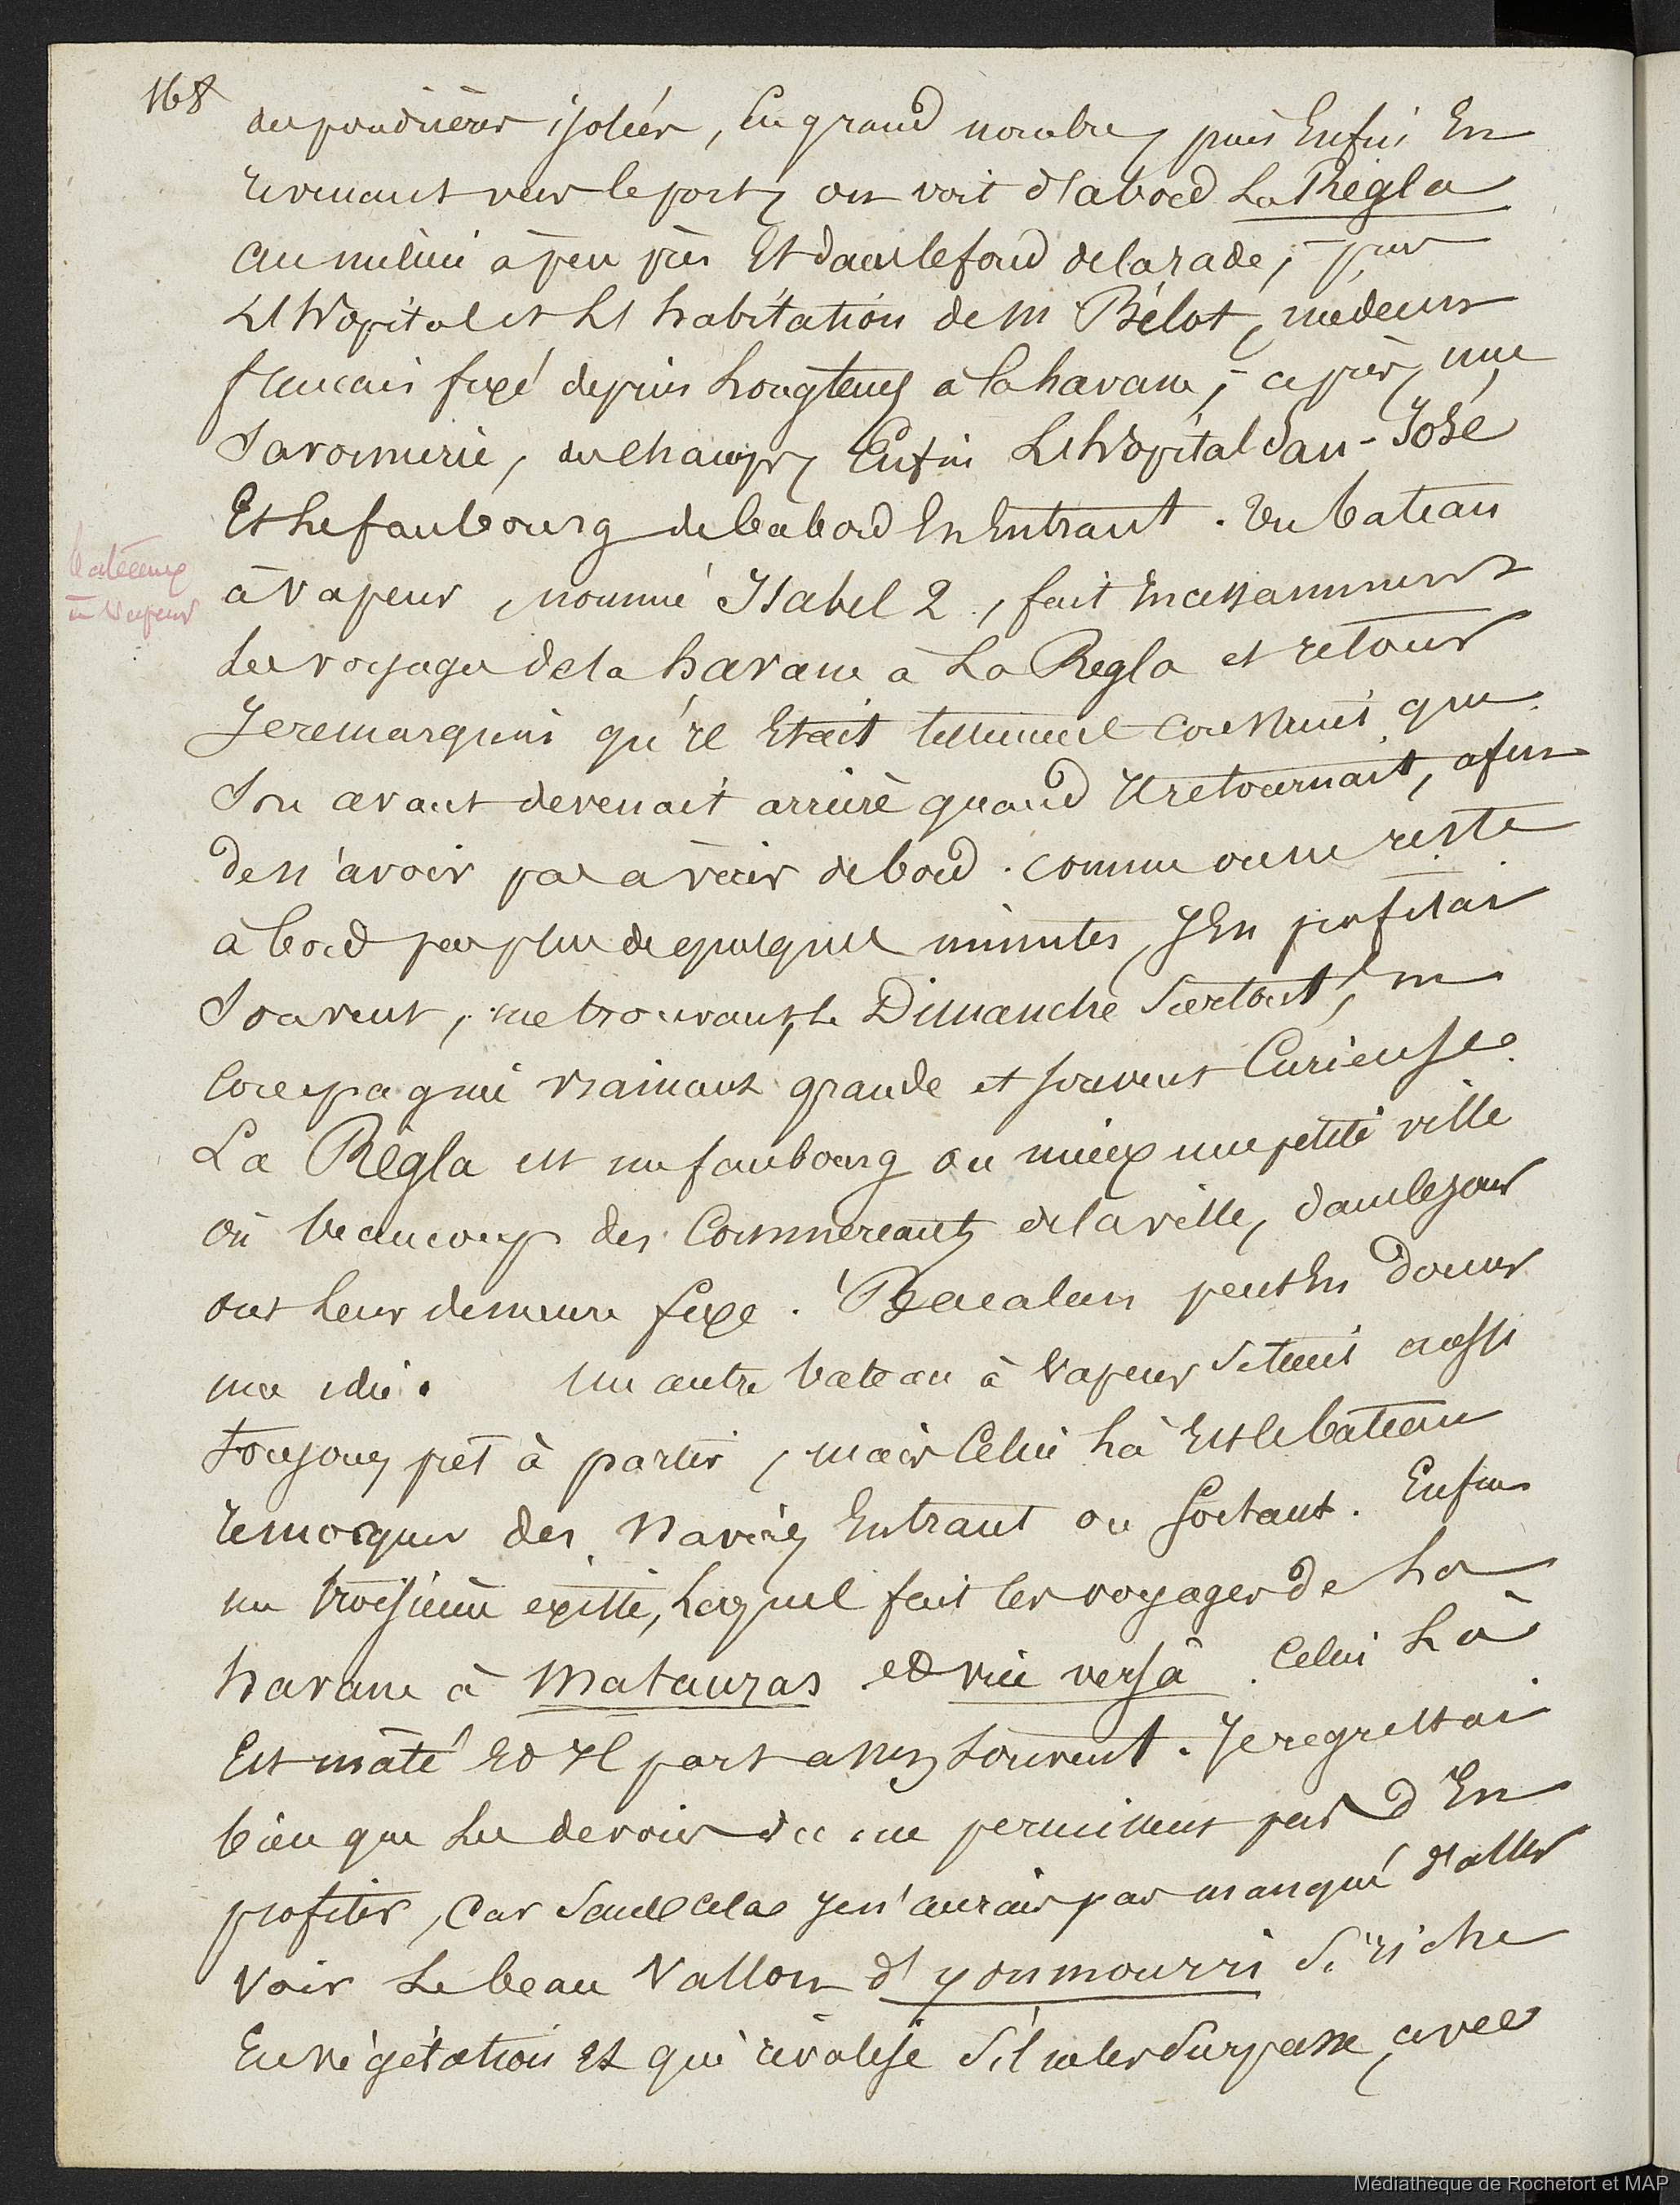 168
des poudrières isolées, En grand nombre, puis Enfin En
revenant vers le port, on voit d'abord La Régla
au milieu à peu près Et dans le fond de la rade; - puis
L'hôpital et L'habitation de M Bélot, médecin
français fixé depuis Longtems à la havane; - après, une
Savonnerie, des champs, Enfin L'hôpital San-José
Et Le faubourg de babord En Entrant. Un bateau
à Vapeur, nommé Isabel 2., fait Incessamment
bateaux
à Vapeur
Les voyages de la havane à La Régla et retour
Je remarquais qu'il Etait tellement construit que
Son avant devenait arrière quand Il retournait, afin
de n'avoir pas à virer de bord. comme on ne reste
à bord pas plus de quelques minutes, J'En profitai
Souvent, me trouvant, Le Dimanche Surtout, En
Compagnie vraiment grande et souvent Curieuse.
La Régla est un faubourg ou mieux une petite ville
où beaucoup des Commerçants de la ville, dans le jour
ont Leur demeure fixe. Bacalan peut En donner
une idée. Un autre bateau à Vapeur Se tenait aussi
toujours prêt à partir, mais Celui Là Est le bateau
remorqueur des Navires Entrant ou Sortant. Enfin
un troisième existe, Lequel fait les voyages de La
havane à Matanzas et vice versâ. Celui Là
Est mâté Et Il part assez Souvent. Je regrettai
bien que Les devoirs ne me permissent pas d'En
profiter, Car Sans Cela Je n'aurais pas manqué d'aller
Voir Le beau Vallon d'yonmourri Si riche
En végétation Et qui rivalise S'il ne les Surpasse, avec
Médiathèque de Rochefort et MAP